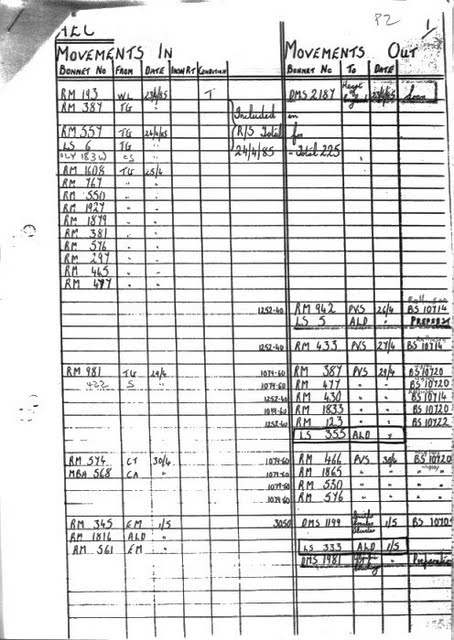 AEC
P2 1
MOVEMENTS IN MOVEMENTS OUT
BONNET No FROM DATE INW RT CONDITION BONNET No TO DATE
RM 193 WL 23/4/85 T DMS 2187 England 23/4/85 Loan
RM 387 TG " Included in
RM 557 TG 24/4/85 R/S Total for
LS 6 TG " 24/4/85 - Total 225
OLY 183W CS "
RM 1608 TG 25/4
RM 767 " "
RM 550 " "
RM 1927 " "
RM 1879 " "
RM 381 " "
RM 576 " "
RM 297 " "
RM 465 " "
RM 477 " "
1252-40 RM 942 PVS 26/4 BS 10714
LS 5 ALD "
1252-40 RM 433 PVS 27/4 BS 10714
RM 981 TG 29/4 1079-60 RM 387 PVS 29/4 BS 10720
422 S " 1079-60 RM 477 " " BS 10720
1252-40 RM 430 " " BS 10714
1079-60 RM 1833 " " BS 10720
1252-40 RM 123 " " BS 10722
LS 355 ALD "
RM 574 CT 30/4 1079-60 RM 466 PVS 30/4 BS 10720
MBA 568 CA " 1079-60 RM 1865 " " "
1079-60 RM 530 " " "
1079-60 RM 576 " " "
RM 345 EM 1/5 3050 DMS 1199 1/5 BS 10705
RM 1816 ALD "
RM 561 EM " LS 333 ALD 1/5
DMS 1981 "